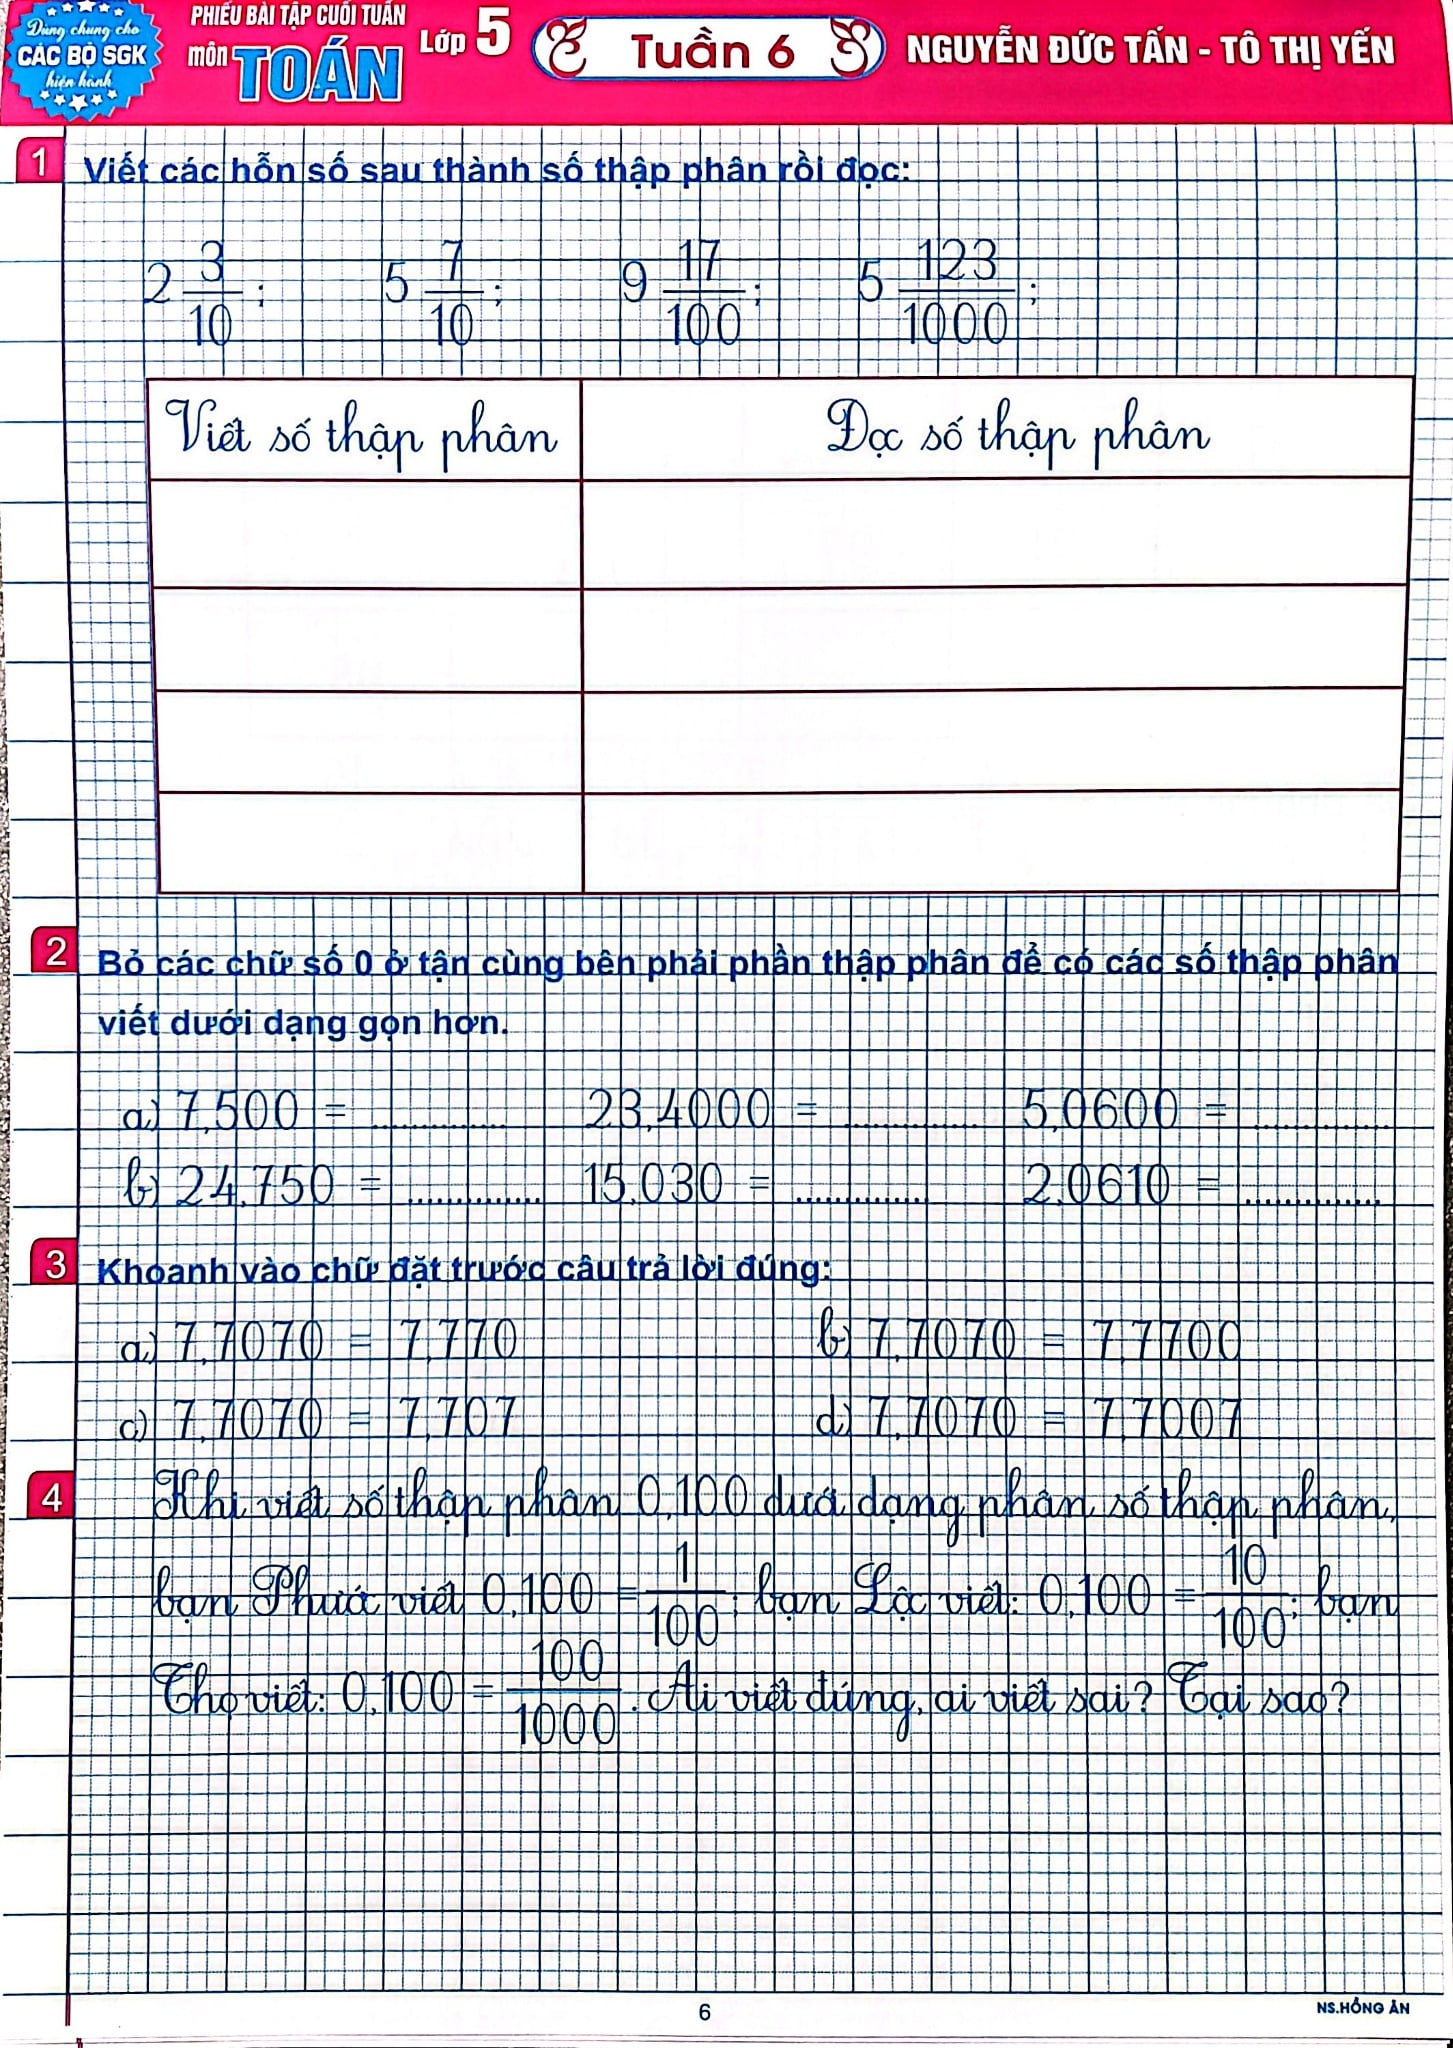 Dùng chung cho
CÁC BỘ SGK
hiện hành
PHIẾU BÀI TẬP CUỐI TUẦN
môn TOÁN Lớp 5
Tuần 6
NGUYỄN ĐỨC TẤN - TÔ THỊ YẾN
1 Viết các hỗn số sau thành số thập phân rồi đọc:
2 3/10 ; 5 7/10 ; 9 17/100 ; 5 123/1000 ;
Viết số thập phân Đọc số thập phân
2 Bỏ các chữ số 0 ở tận cùng bên phải phần thập phân để có các số thập phân
viết dưới dạng gọn hơn.
a) 7,500 = ............ 23,4000 = ............ 5,0600 = ............
b) 24,750 = ............ 15,030 = ............ 2,0610 = ............
3 Khoanh vào chữ đặt trước câu trả lời đúng:
a) 7,7070 = 7,770 b) 7,7070 = 7,7700
c) 7,7070 = 7,707 d) 7,7070 = 7,7007
4 Khi viết số thập phân 0,100 dưới dạng phân số thập phân,
bạn Phước viết 0,100 = 1/100 ; bạn Lộc viết: 0,100 = 10/100 ; bạn
Thọ viết: 0,100 = 100/1000 . Ai viết đúng, ai viết sai? Tại sao?
6
NS.HỒNG ÂN